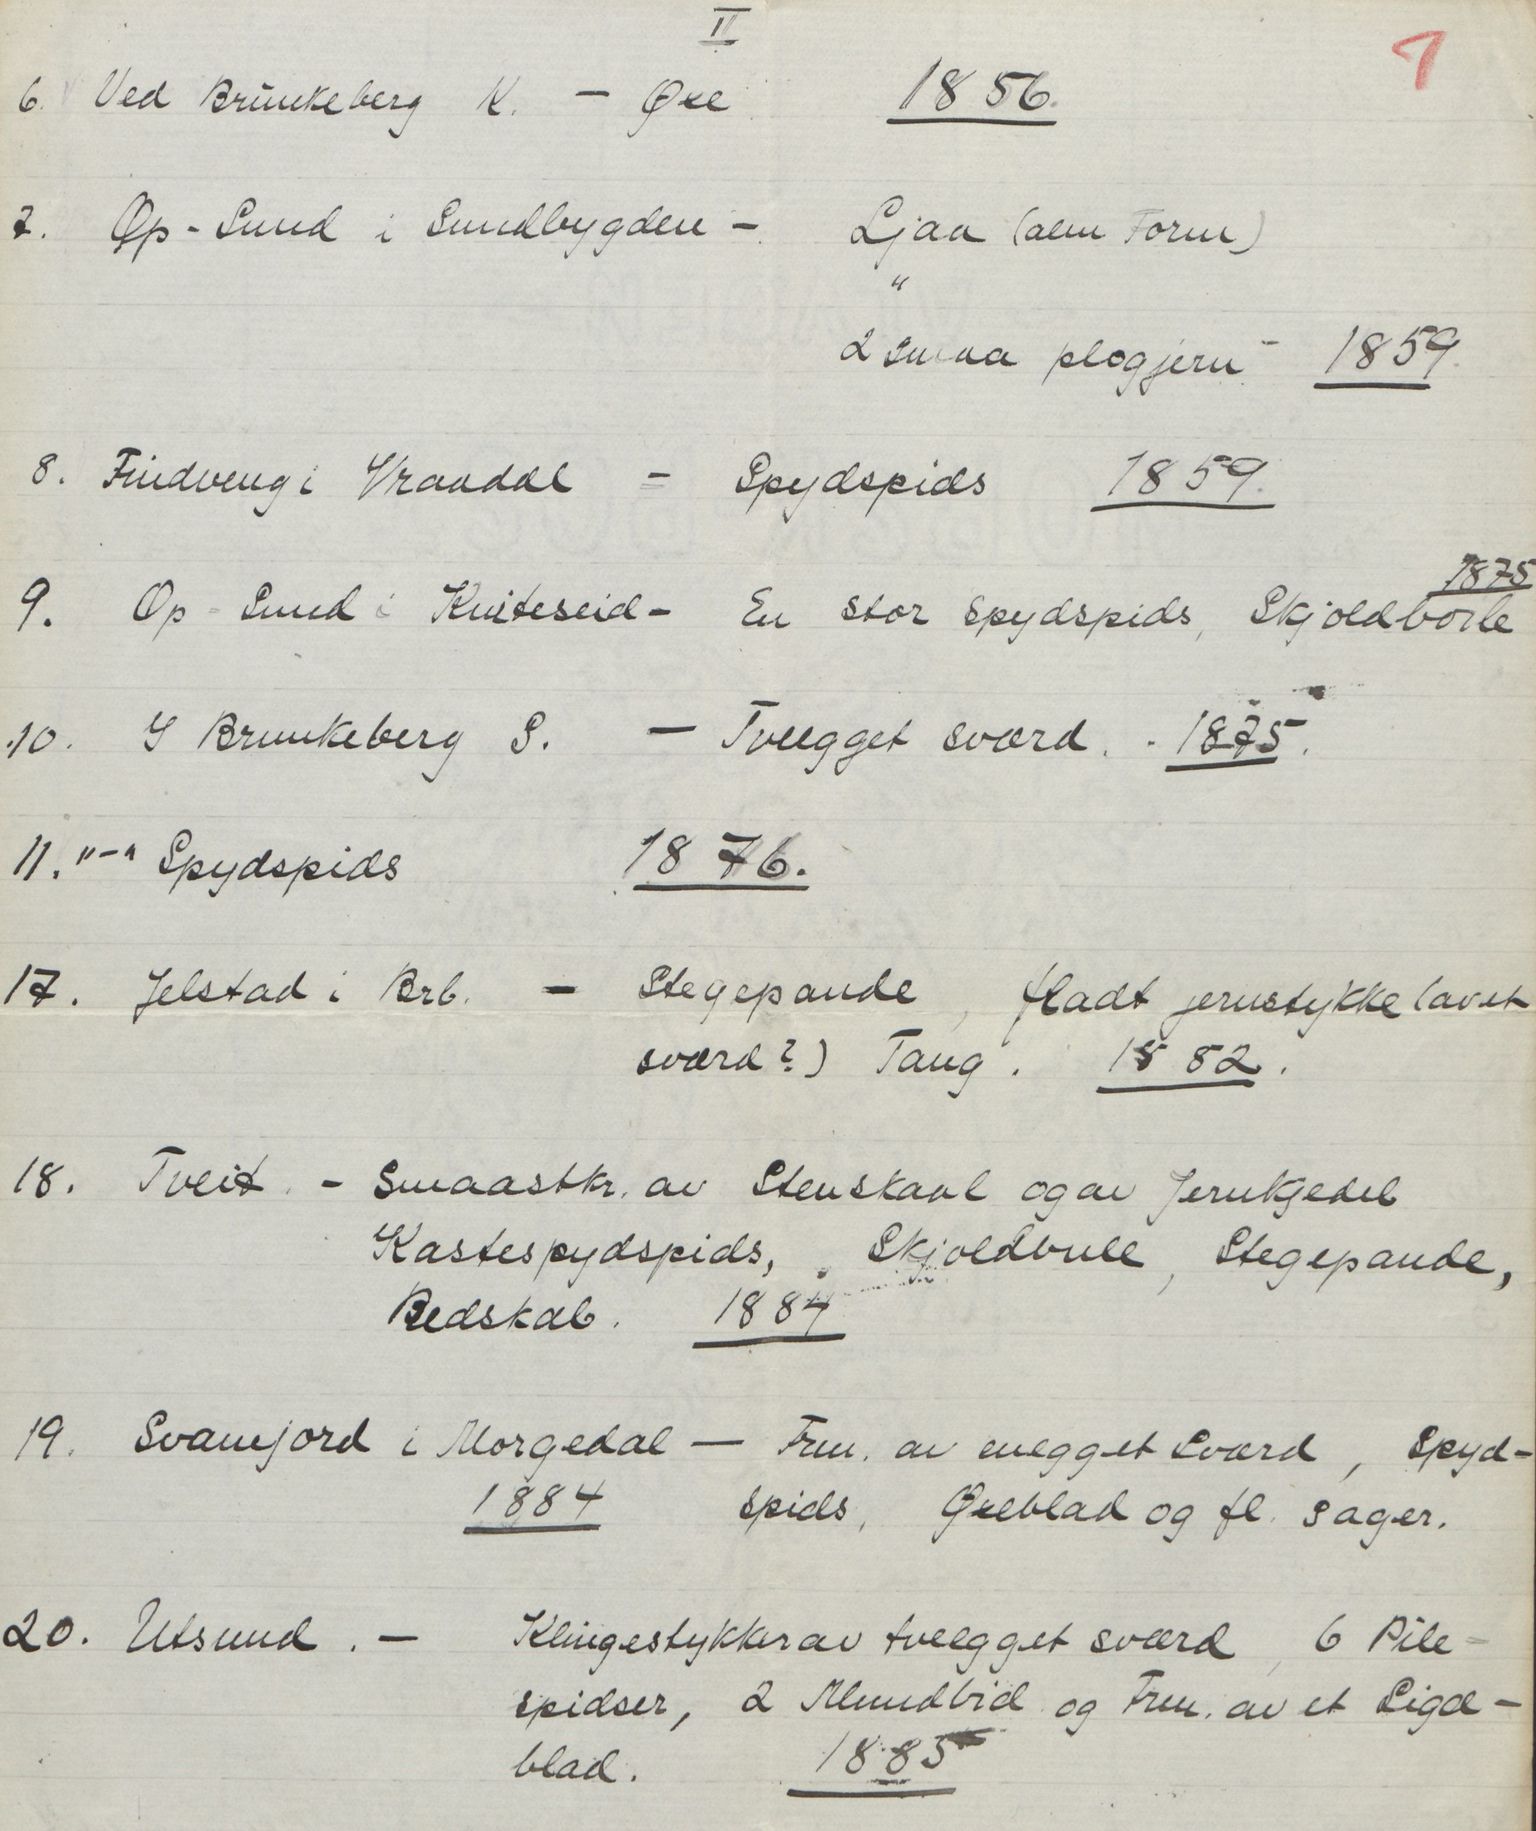 II
6. Ved Brunkeberg K. - Øxe 1856.
7. Op-Sund i Sundbygden - Ljaa (alm Form)
"
2 smaa plogjern - 1859.
8. Findveng i Vraadal - Spydspids 1859.
9. Op-Sund i Kviteseid - En stor Spydspids, Skjoldbole 1875
10. I Brunkeberg S. - Tveegget sværd. 1875.
11. "-" Spydspids 1876.
17. Jelstad i Brb. - Stegepande, fladt jernstykke (av et
sværd?) Tang. 1882.
18. Tveit. - Smaastkr. av Stenskaal og av Jernkjedel
Kastespydspids, Skjoldbule, Stegepande,
Redskab. 1884
19. Svanejord i Morgedal - Frm. av enegget Sværd, Spyd-
1884 spids, Øxeblad og fl. sager.
20. Utsund. - Klingestykker av tveegget sværd, 6 Pile-
spidser, 2 Mundbid og Frm. av et Sigd-
blad. 1885